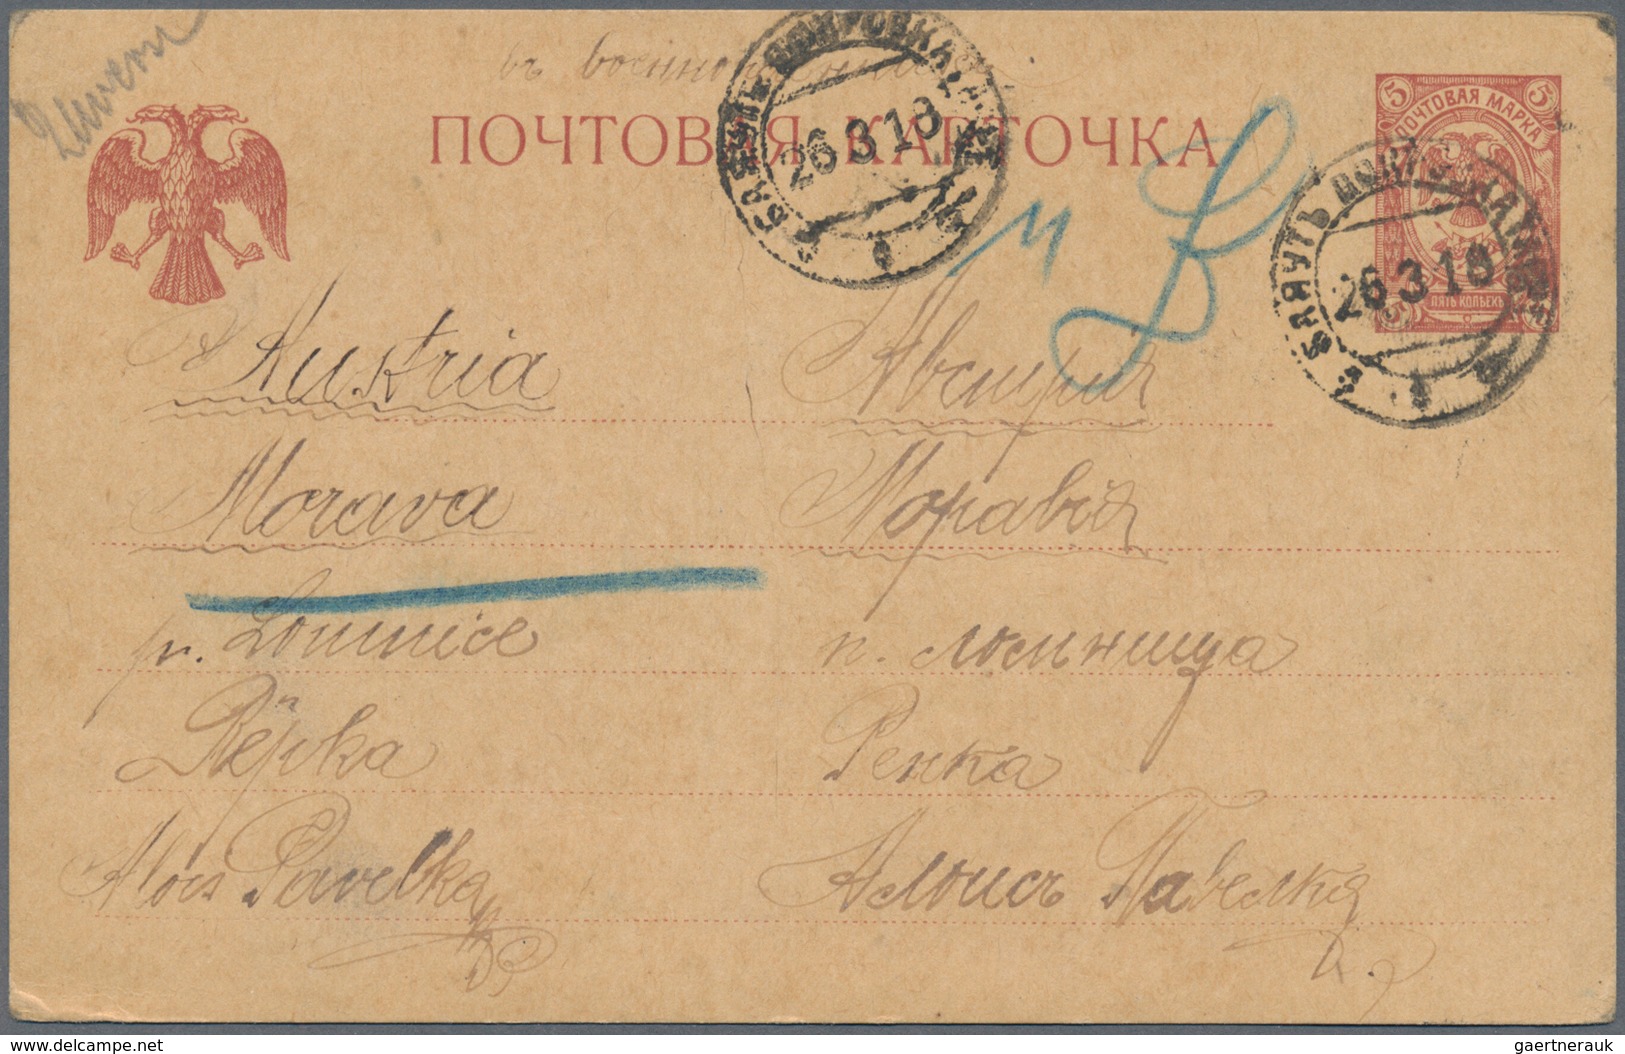 въ
ПОЧТОВАЯ КАРТОЧКА
5 5
ПОЧТОВАЯ МАРКА
ПЯТЬ КОПѢЕКЪ
26 3 18
26 3 18
Austria
Morava
p. Lomnice
Řepka
Alois Pavelka
Австрія
Моравія
п. Ломница
Репка
Алоисъ Павелка
delcampe.net
gaertnerauk